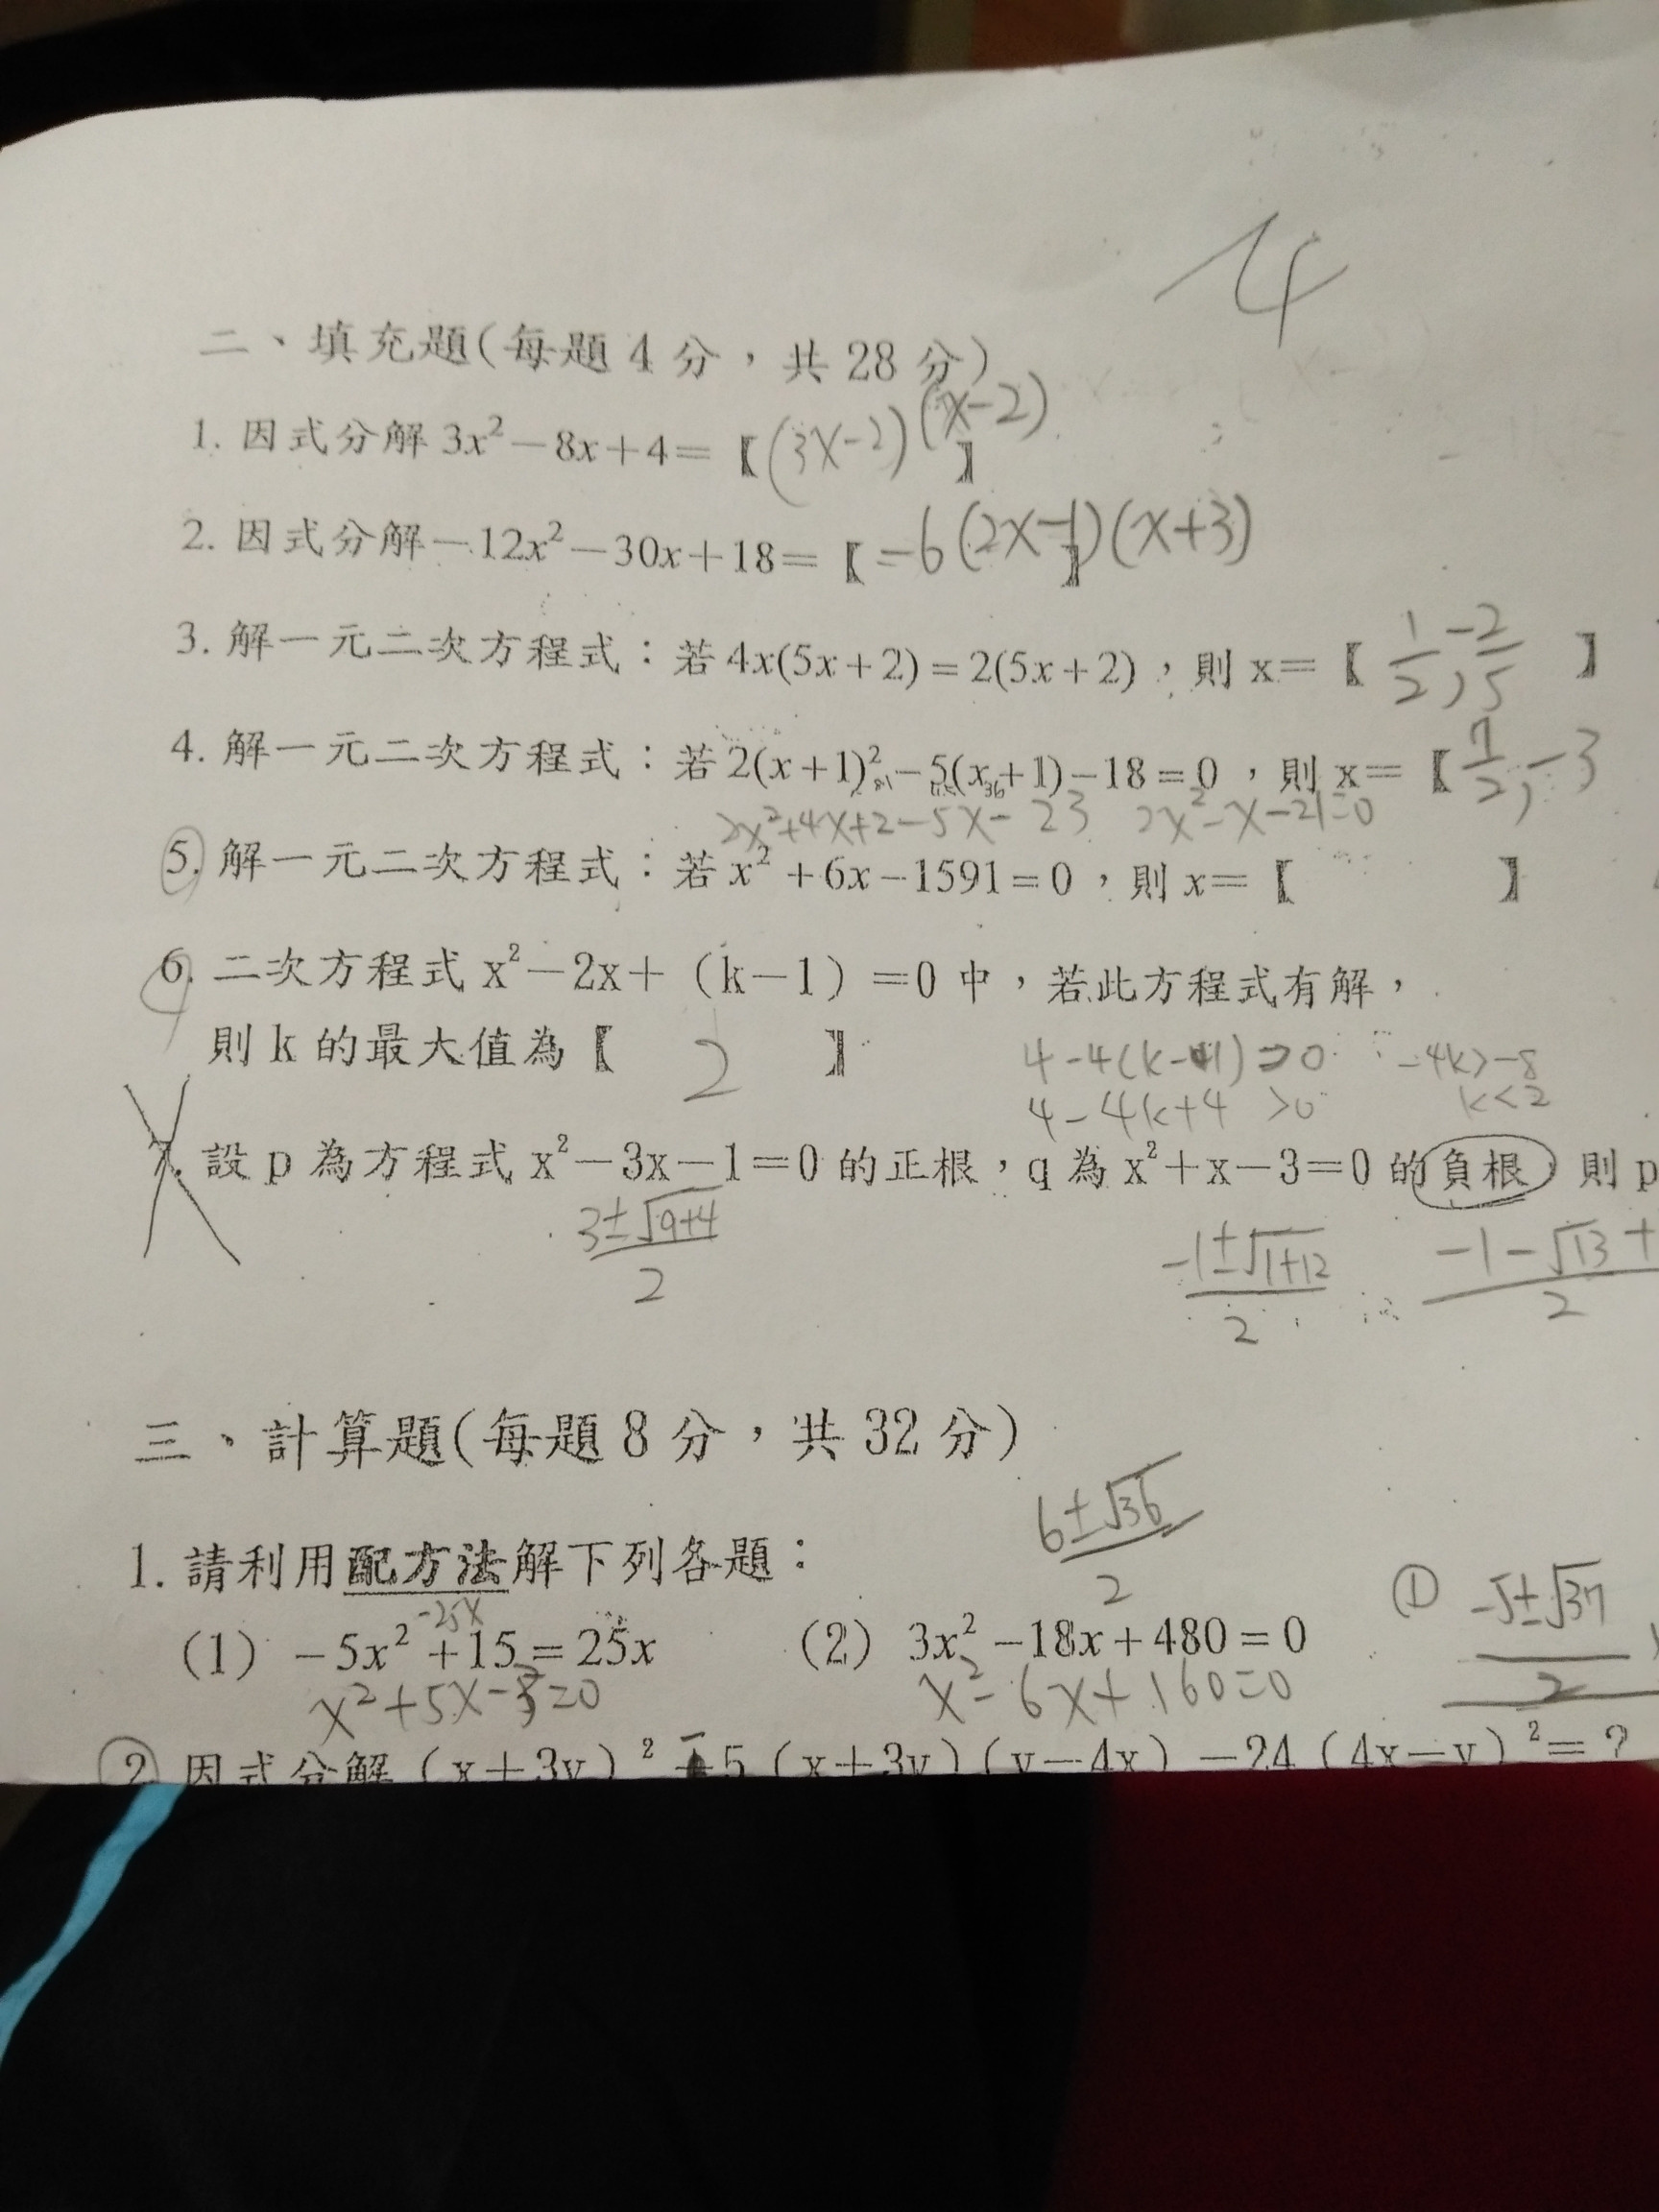 4
二、填充題(每題 4 分，共 28 分)
1. 因式分解 3x²－8x＋4＝【(3x-2)(x-2)】
2. 因式分解－12x²－30x＋18＝【-6(2x-1)(x+3)】
3. 解一元二次方程式：若 4x(5x＋2)＝2(5x＋2)，則 x＝【1/2, -2/5】
4. 解一元二次方程式：若 2(x＋1)²－5(x＋1)－18＝0，則 x＝【7/2, -3
2x²+4x+2-5x-23 2x²-x-21=0
5. 解一元二次方程式：若 x²＋6x－1591＝0，則 x＝【 】
6. 二次方程式 x²－2x＋（k－1）＝0 中，若此方程式有解，
則 k 的最大值為【 2 】
4-4(k-1)>0 -4k>-8
4-4k+4 >0 k<2
7. 設 p 為方程式 x²－3x－1＝0 的正根，q 為 x²＋x－3＝0 的負根 則 p
3±√9+4/2 -1±√1+12/2 -1-√13+/2
三、計算題(每題 8 分，共 32 分)
6±√36/2
1. 請利用配方法解下列各題：
-25x
(1) －5x²＋15＝25x (2) 3x²－18x＋480＝0 ① -5±√37/2
x²+5x-3=0 x²-6x+160=0
2. 因式分解（x＋3y）²－5（x＋3y）（y－4x）－24（4x－y）²＝？